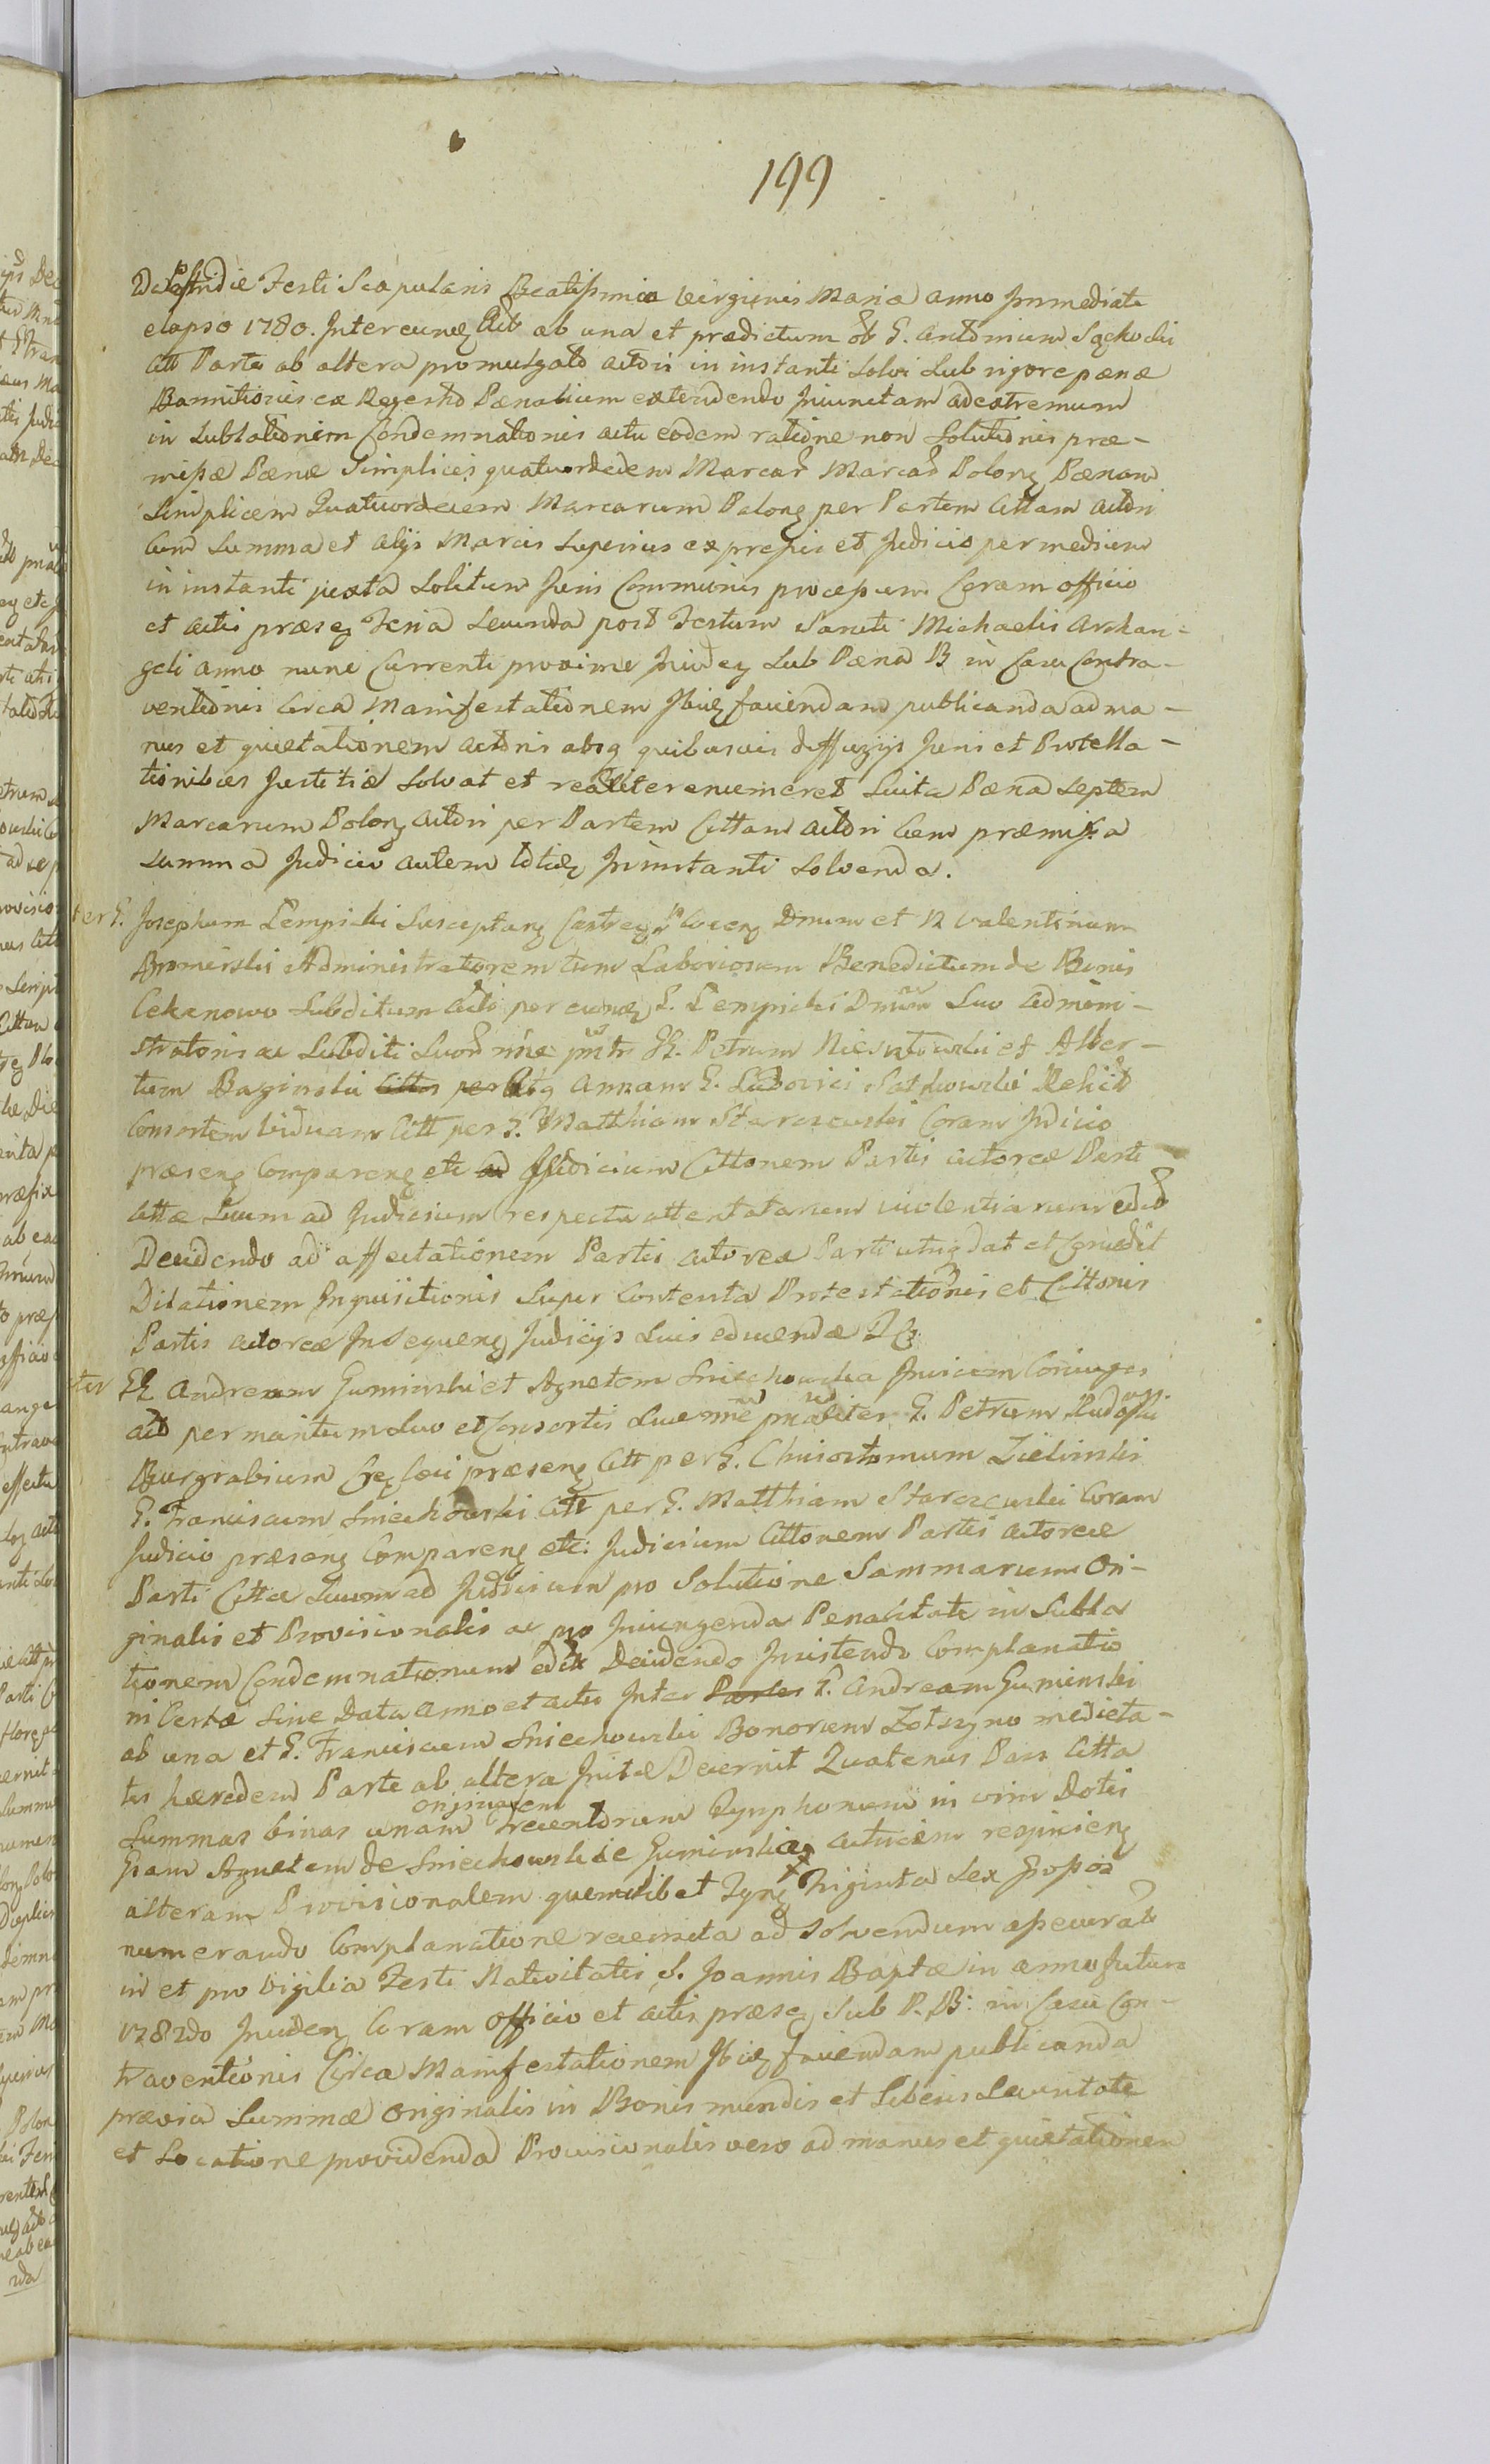 199
Postridie Festi Scapularis Beatissimæ Virginis Mariæ anno Immediate
elapso 1780. Inter eunq Act ab una et prædictum ob G. Antonium Sochocki
Citt Parte ab altera promulgato actori in instanti Solvi Sub rigore pænæ
Bannitionis ex Regestro Pænalium extendendo Iniunctam ad extremum
in Sublationem Condemnationis actu eodem ratione non Solutionis præ-
missæ Pænæ Simplicis quatuordecem Marcar Marcar Polonq Pænam
Simplicem Quatuordecem Marcarum Polonq per Partem Cittam actori
Cum Summa et alijs Marcis Superius expressis et Judicio per medium
in instanti juxta Solitum Juris Communis processum Coram officio
et actis præsq Feria Secunda post Festum Sancti Michaelis Archan-
geli anno nunc Currenti proxime Incideq Sub Pæna B in Casu Contra-
ventionis Circa Manifestationem Ibiq faciendam publicanda ad ma-
nus et quietationem actoris absq quibusvis diffugijs Juris et Protella-
tionibus Justitiæ Solvat et realiter enumeret Luita Pæna Septem
Marcarum Polonq actori per Partem Cittam actori Cum præmissa
Summa Judicio autem totidq In instanti Solvenda.
ter G. Josephum Lempicki Susceptanq Castreq Plocenq Dnum et N Valentinum
Bromirski Administratorem tum Laboriosum Benedictum de Bonis
Cekanowo Subditum Acti per eunq G. Lempicki Dnum Suo admini-
stratoris ac Subditi Suor nne pntr GG. Petrum Niesułowski et Alber-
tum Baginski Cittos per Atq Annam G. Ludovici Sochowski Relict
Consortem Viduam Citt per G. Matthiam Starozewski Coram Judicio
præsenq Comparenq etc ad Judicium Cittonem Partis actoreæ Parti
Cittæ Suum ad Judicium respectu attentatarum violentiarum edit
Decidendo ad affectationem Partis actoreæ Parti utriq dat et Concedit
Dilationem Inquisitionis Super Contenta Protestationis et Cittonis
Partis actoreæ Insequenq Judicijs Suis educendæ
ter GG Andream Guminski et Agnetem Sniechowska Invicem Coniuges
act per maritum Suo et Consortis Suæ nne pnaliter G. Petrum Rudowski
Burgrabium Cq Loci præsenq Citt per G. Chrisostomum Zielinski
G. Franciscum Sniechowski Citt per G. Matthiam Starozewski Coram
Judicio præsenq Comparenq etc: Judicium Cittonem Partis actoreæ
Parti Cittæ Suum ad Judicium pro Solutione Summarum Ori-
ginalis et Provisionalis ac pro Iniungenda Penalitate in Subla
tionem Condemnationum edit Decidendo Inistendo Complanatio
ni Certæ Sine Data Anno et actu Inter Partes G. Andream Guminski
ab una et G. Franciscum Sniechowski Bonorum Zotszyno medieta-
tis hæredem Parte ab altera Initæ Decernit Quatenus Pars Citta
Summas binas unam originalem Trecentorum Tynphonum in vim Dotis
Gsam Agnetem de Sniechowskie Guminskiq actricem respicienq
alteram Provisionalem quemlibet Tynq Triginta Sex Grossos
numerando Complanatione recensita ad Solvendum assecurat
in et pro Vigilia Festi Nativitatis S. Joannis Baptæ in anno futuro
1782do Incidenq Coram Officio et actis præsq Sub P. B: in Casu Con-
traventionis Circa Manifestationem Ibiq faciendam publicanda
prævia Summæ originalis in Bonis mundis et Liberis Securitate
et Locatione providenda Provisionalis vero ad manus et quietationem